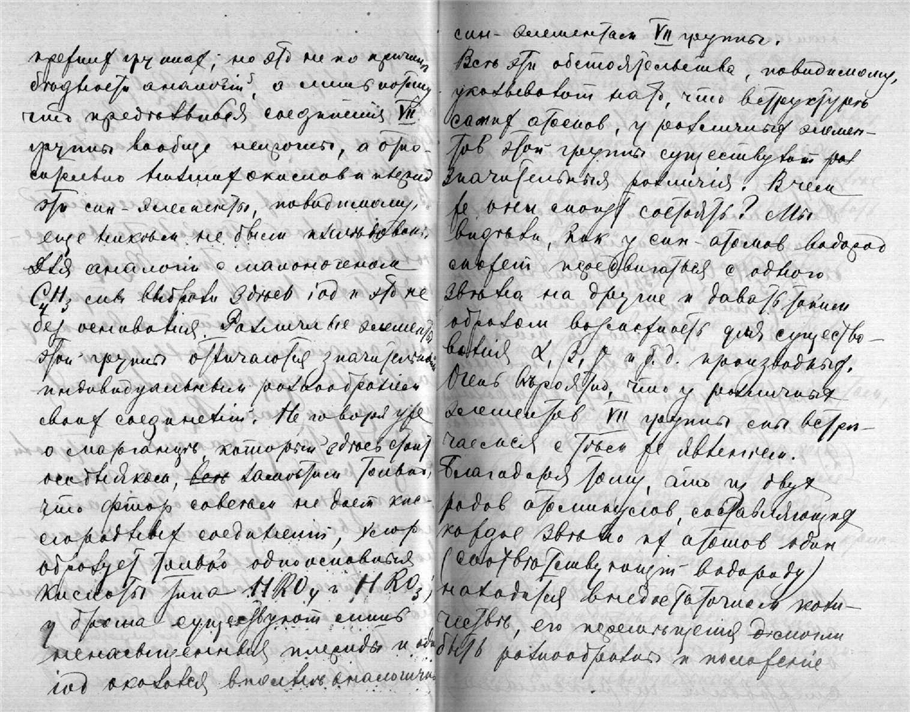 третих групах; но это не по причине
бѣдности аналогій, а лишь потому
что предѣльныя соединенія VII
группы вообще непрочны, а отно-
сительно высших окислов и перекисей
эти син-элементы, повидимому,
еще никѣм не были
Для аналогіи с
CH3 мы выбрали здѣсь іод и это не
без основанія. Различные элементы
этой группы отличаются значительным
индивидуальным разнообразіем
своих соединеній. Не говоря уже
о марганцѣ который здѣсь стоит
особняком, замѣтим только,
что фтор совсѣм не дает кис-
лородных соединеній, хлор
образует только одноосновныя
кислоты типа HRO4 и HRO3;
у брома существуют лишь
ненасыщенныя
іод оказался вполнѣ аналогичн
син-элементам VII группы.
Всѣ эти обстоятельства, повидимому,
указывают на то, что в структурѣ
самих атомов, у различных элемен-
тов этой группы существуют
значительныя различія. В чем
же они могут состоять? Мы
видѣли, как у син-атомов водород
может передвигаться с одного
звѣна на другие и давать таким
образом возможность для существо-
ванія α, β, γ и т.д. производных.
Очень вѣроятно, что у различных
элементов VII группы мы встрѣ-
чаемся с тѣм же явленіем.
Благодаря тому, что из двух
родов атомных составляющих
каждое звѣно их атомов один
(соотвѣтствующій водороду)
находится в недостаточном коли-
чествѣ, его перемѣщенія должны
быть разнообразны и положеніе